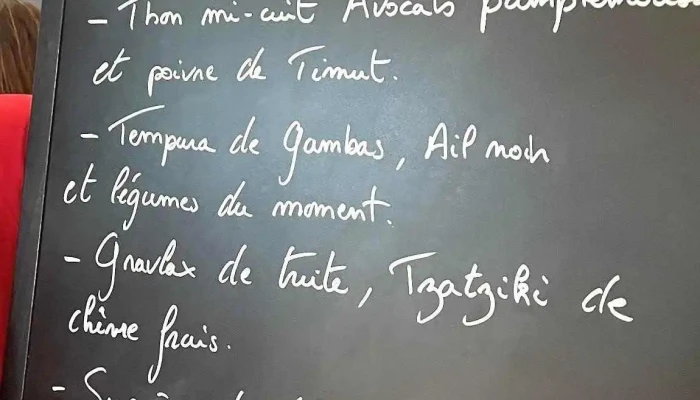 - Thon mi-cuit Avocats
et poivre de Timut.
- Tempura de gambas, Ail noir
et légumes du moment.
- Gravlax de truite, Tzatziki de
chèvre frais.
-